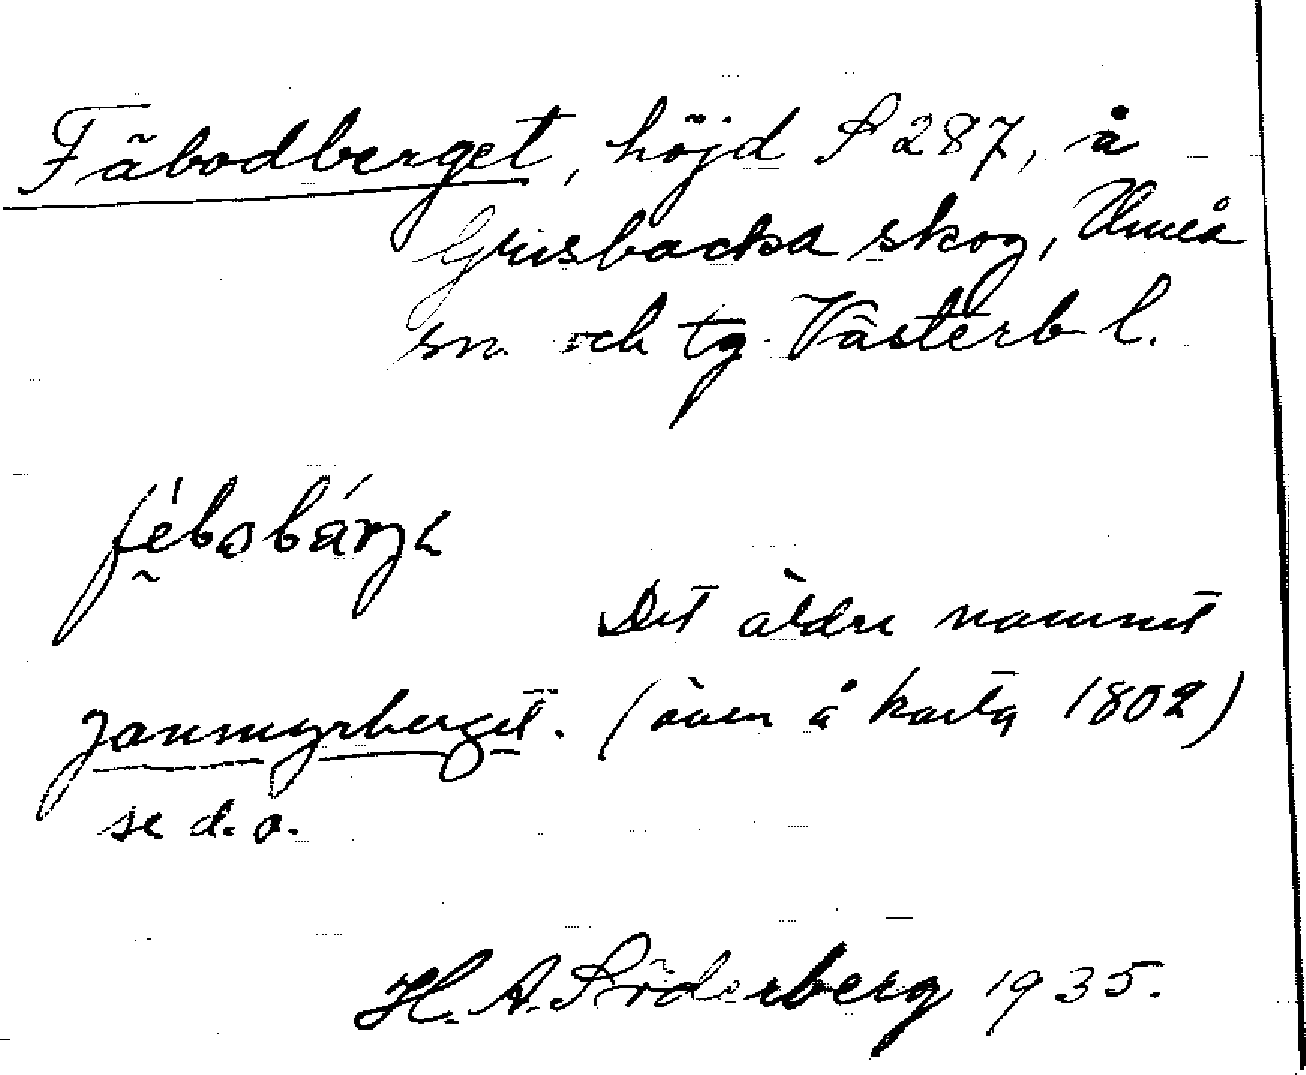 Fäbodberget, höjd S 287, å
Grisbacka skog, Umeå
sn. och tg. Västerb l.
Det äldre namnet
Janmyrberget. (även å karta 1802)
se d. o.
H. A. Söderberg 1935.